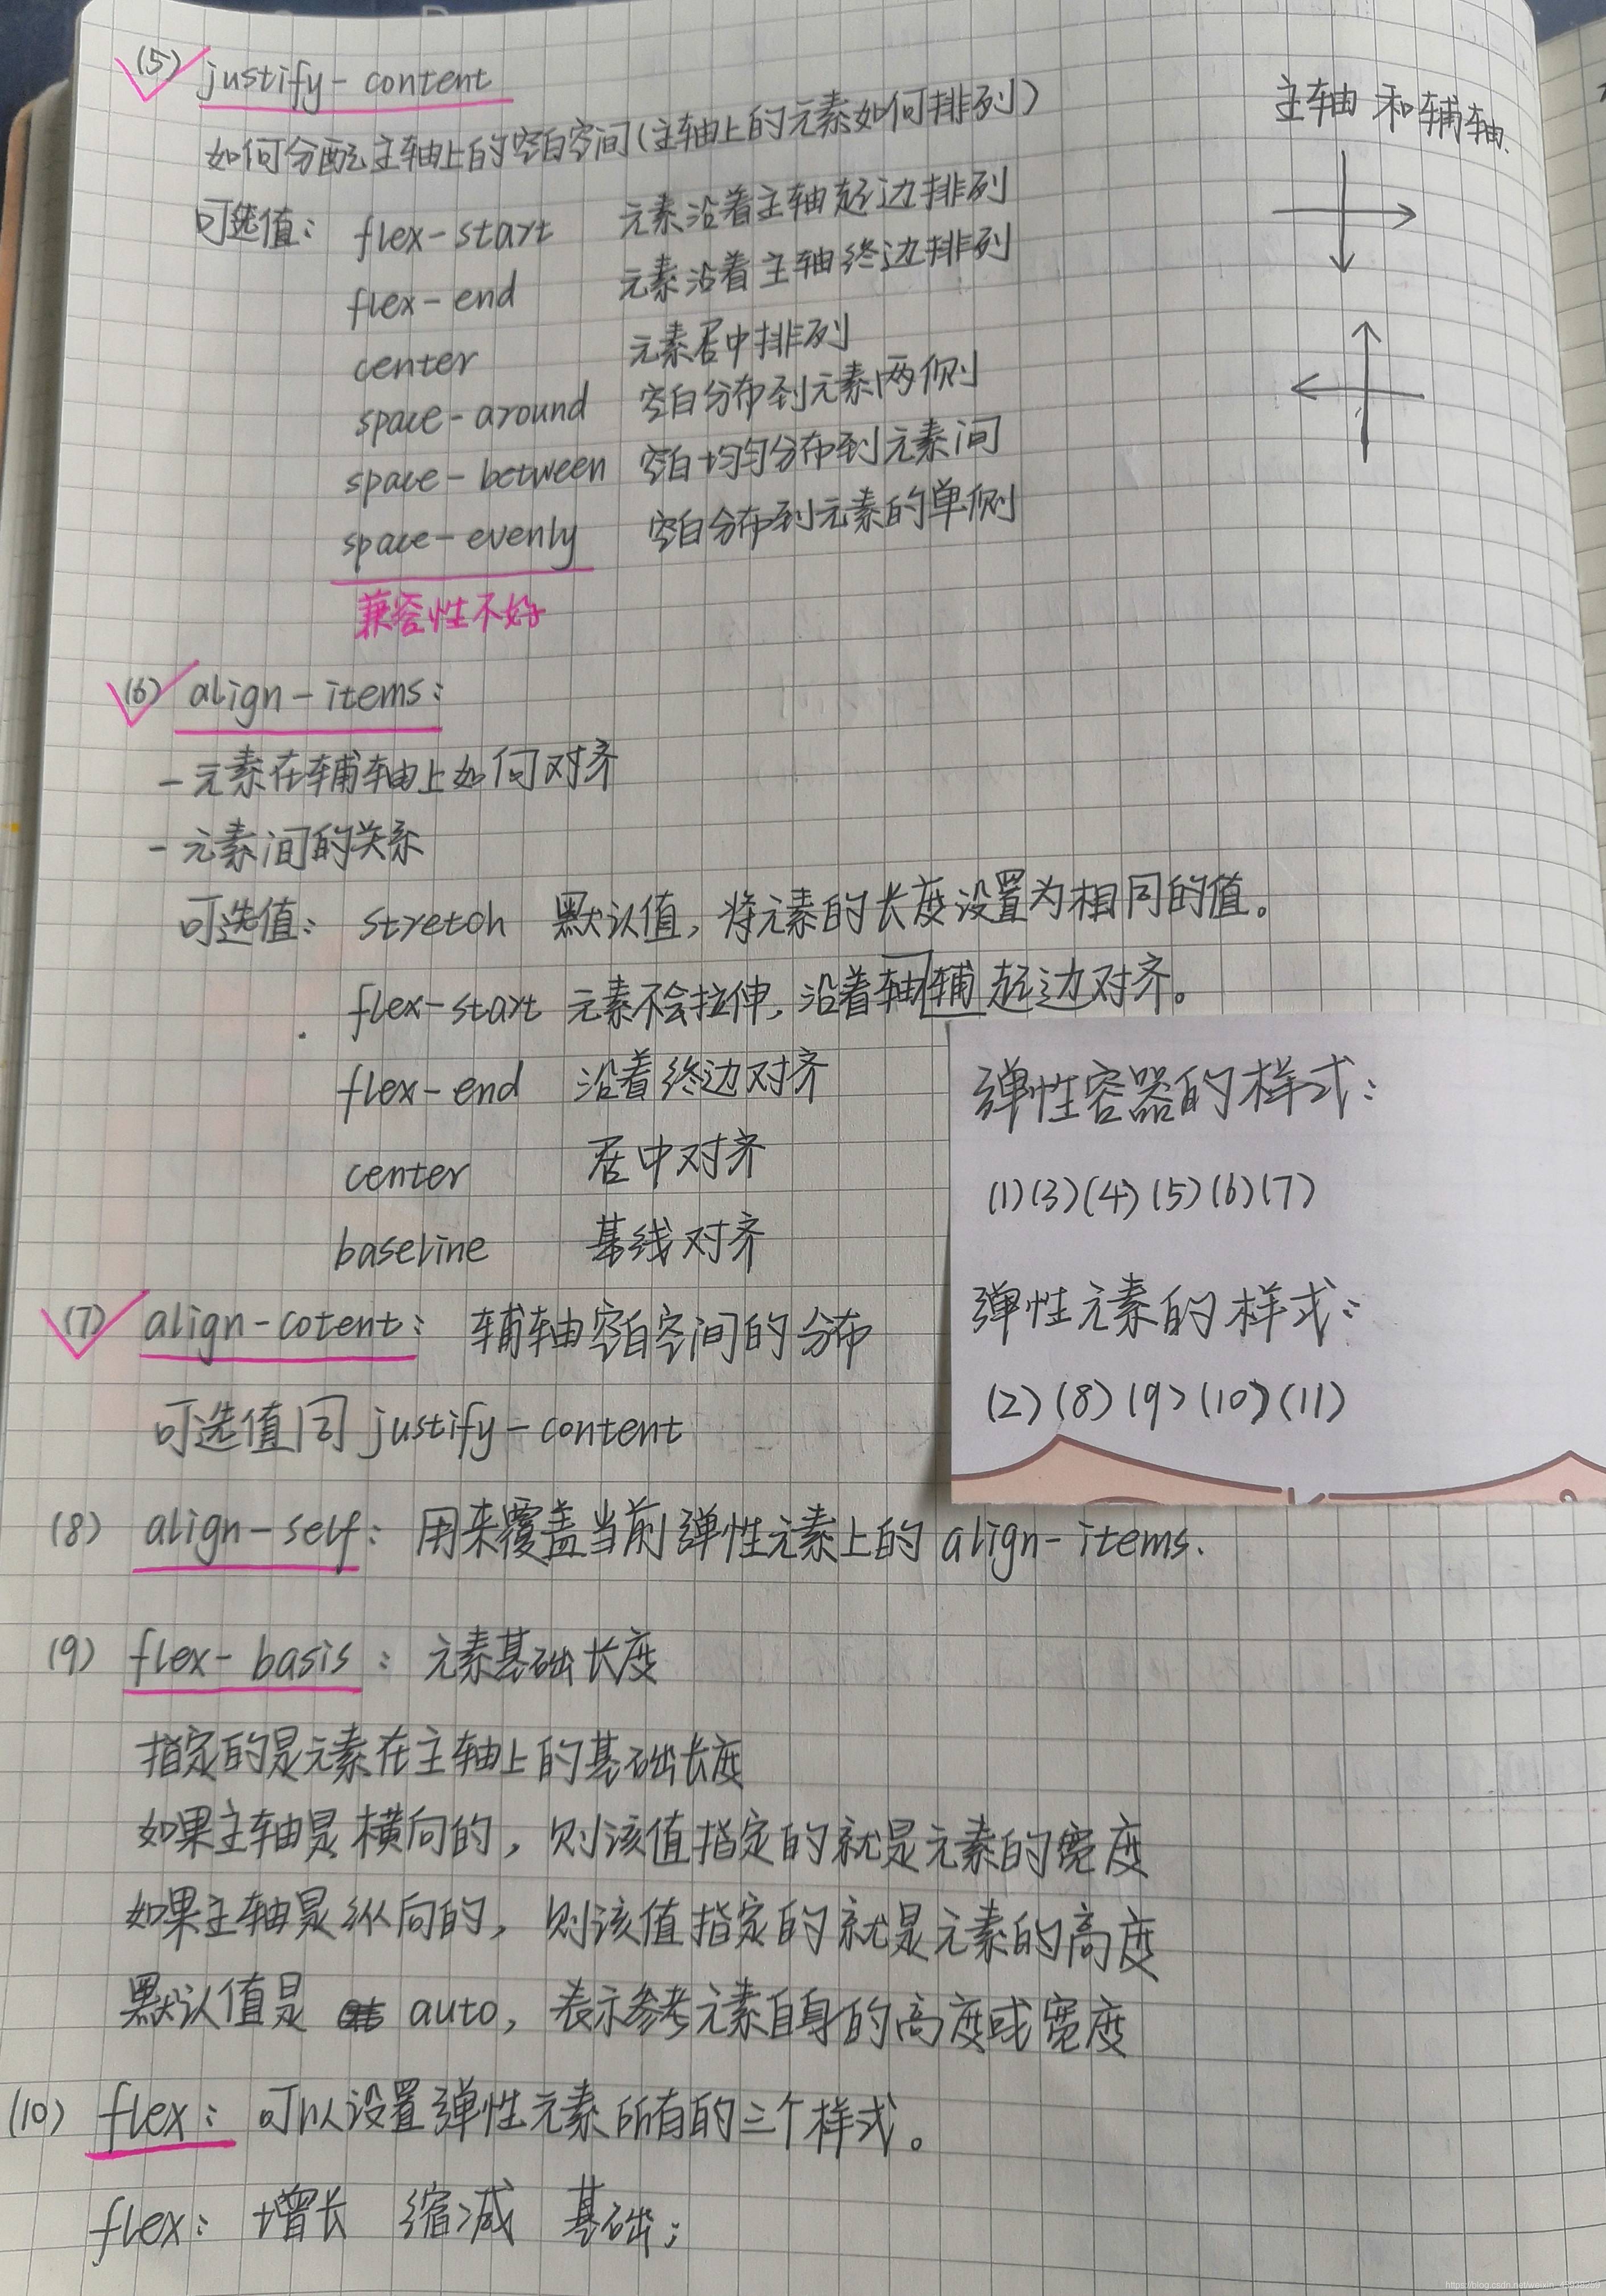 (5) justify-content
如何分配主轴上的空白空间(主轴上的元素如何排列)
可选值: flex-start 元素沿着主轴起边排列
flex-end 元素沿着主轴终边排列
center 元素居中排列
space-around 空白分布到元素两侧
space-between 空白均匀分布到元素间
space-evenly 空白分布到元素的单侧
兼容性不好
主轴 和 辅轴.
(6) align-items:
-元素在辅轴上如何对齐
-元素间的关系
可选值: stretch 默认值, 将元素的长度设置为相同的值。
flex-start 元素不会拉伸, 沿着轴辅起边对齐。
flex-end 沿着终边对齐
center 居中对齐
baseline 基线对齐
(7) align-cotent: 辅轴空白空间的分布
可选值同 justify-content
弹性容器的样式:
(1)(3)(4)(5)(6)(7)
弹性元素的样式:
(2)(8)(9)(10)(11)
(8) align-self: 用来覆盖当前弹性元素上的 align-items.
(9) flex-basis: 元素基础长度
指定的是元素在主轴上的基础长度
如果主轴是横向的, 则该值指定的就是元素的宽度
如果主轴是纵向的, 则该值指定的就是元素的高度
默认值是 auto, 表示参考元素自身的高度或宽度
(10) flex: 可以设置弹性元素所有的三个样式。
flex: 增长 缩减 基础;